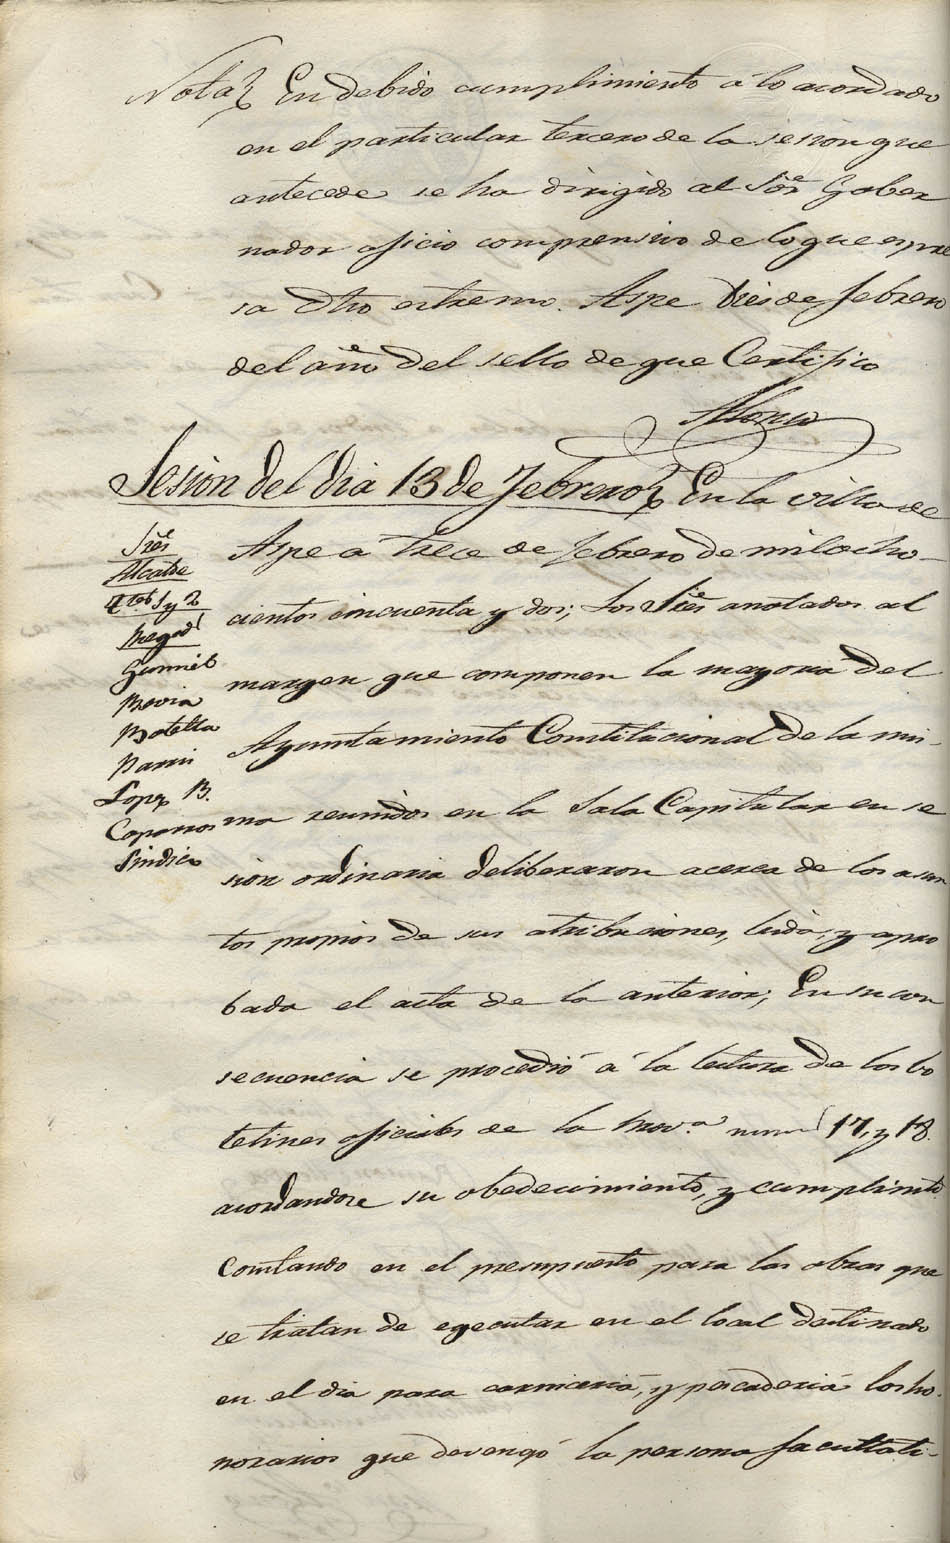 Nota, En debido cumplimiento á lo acordado
en el particular tercero de la sesion que
antecede se ha dirigido al Sõr. Gober
nador oficio comprensivo de lo que espre
sa dho estremo. Aspe tres de febrero
del año del sello de que Certifico
Alonso
Sesion del dia 13 de Febrero, En la villa de
Aspe a trece de febrero de mil ocho
cientos cincuenta y dos; Los Sres anotados al
margen que componen la mayoria del
Ayuntamiento Constitucional de la mis-
ma reunidos en la Sala Capitular en se
sion ordinaria deliberaron acerca de los asun
tos propios de sus atribuciones, leida, y apro
bada el acta de la anterior; En su con
secuencia se procedió á la lectura de los bo
letines oficiales de la Prov.ª num.s 17, y 18.
acordandose su obedecimiento, y cumplimto.
Constando en el presupuesto para las obras que
se tratan de egecutar en el local destinado
en el dia para carniceria, y pescaderia los ho-
norarios que devengó la persona facultati-
Sres
Alcalde
Ttes 1 y 2
Regid.s
Gumiel
Bevia
Botella
Pavia
Lopez B.
Caparros
Sindico